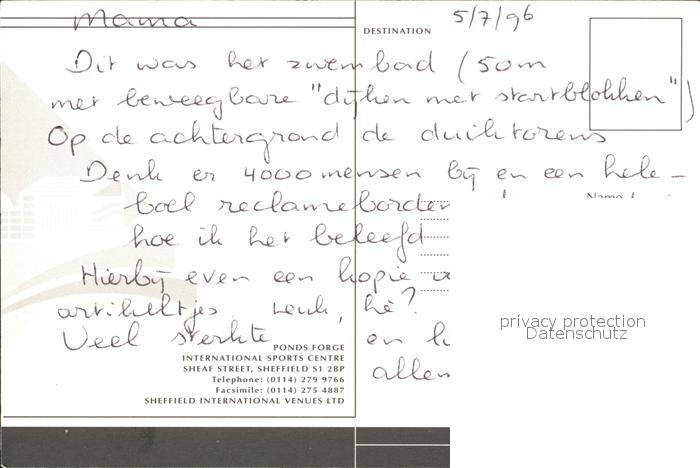 Mama
DESTINATION
5/7/96
Dit was het zwembad (50m
met beweegbare "dijken met startblokken")
Op de achtergrond de duiktorens
Denk er 4000 mensen bij en een hele-
boel reclameborden
hoe ik het beleefd
Hierbij even een kopie
artikeltjes. Leuk, hè?
Veel sterkte en
allen
PONDS FORGE
INTERNATIONAL SPORTS CENTRE
SHEAF STREET, SHEFFIELD S1 2BP
Telephone: (0114) 279 9766
Facsimile: (0114) 275 4887
SHEFFIELD INTERNATIONAL VENUES LTD
privacy protection
Datenschutz